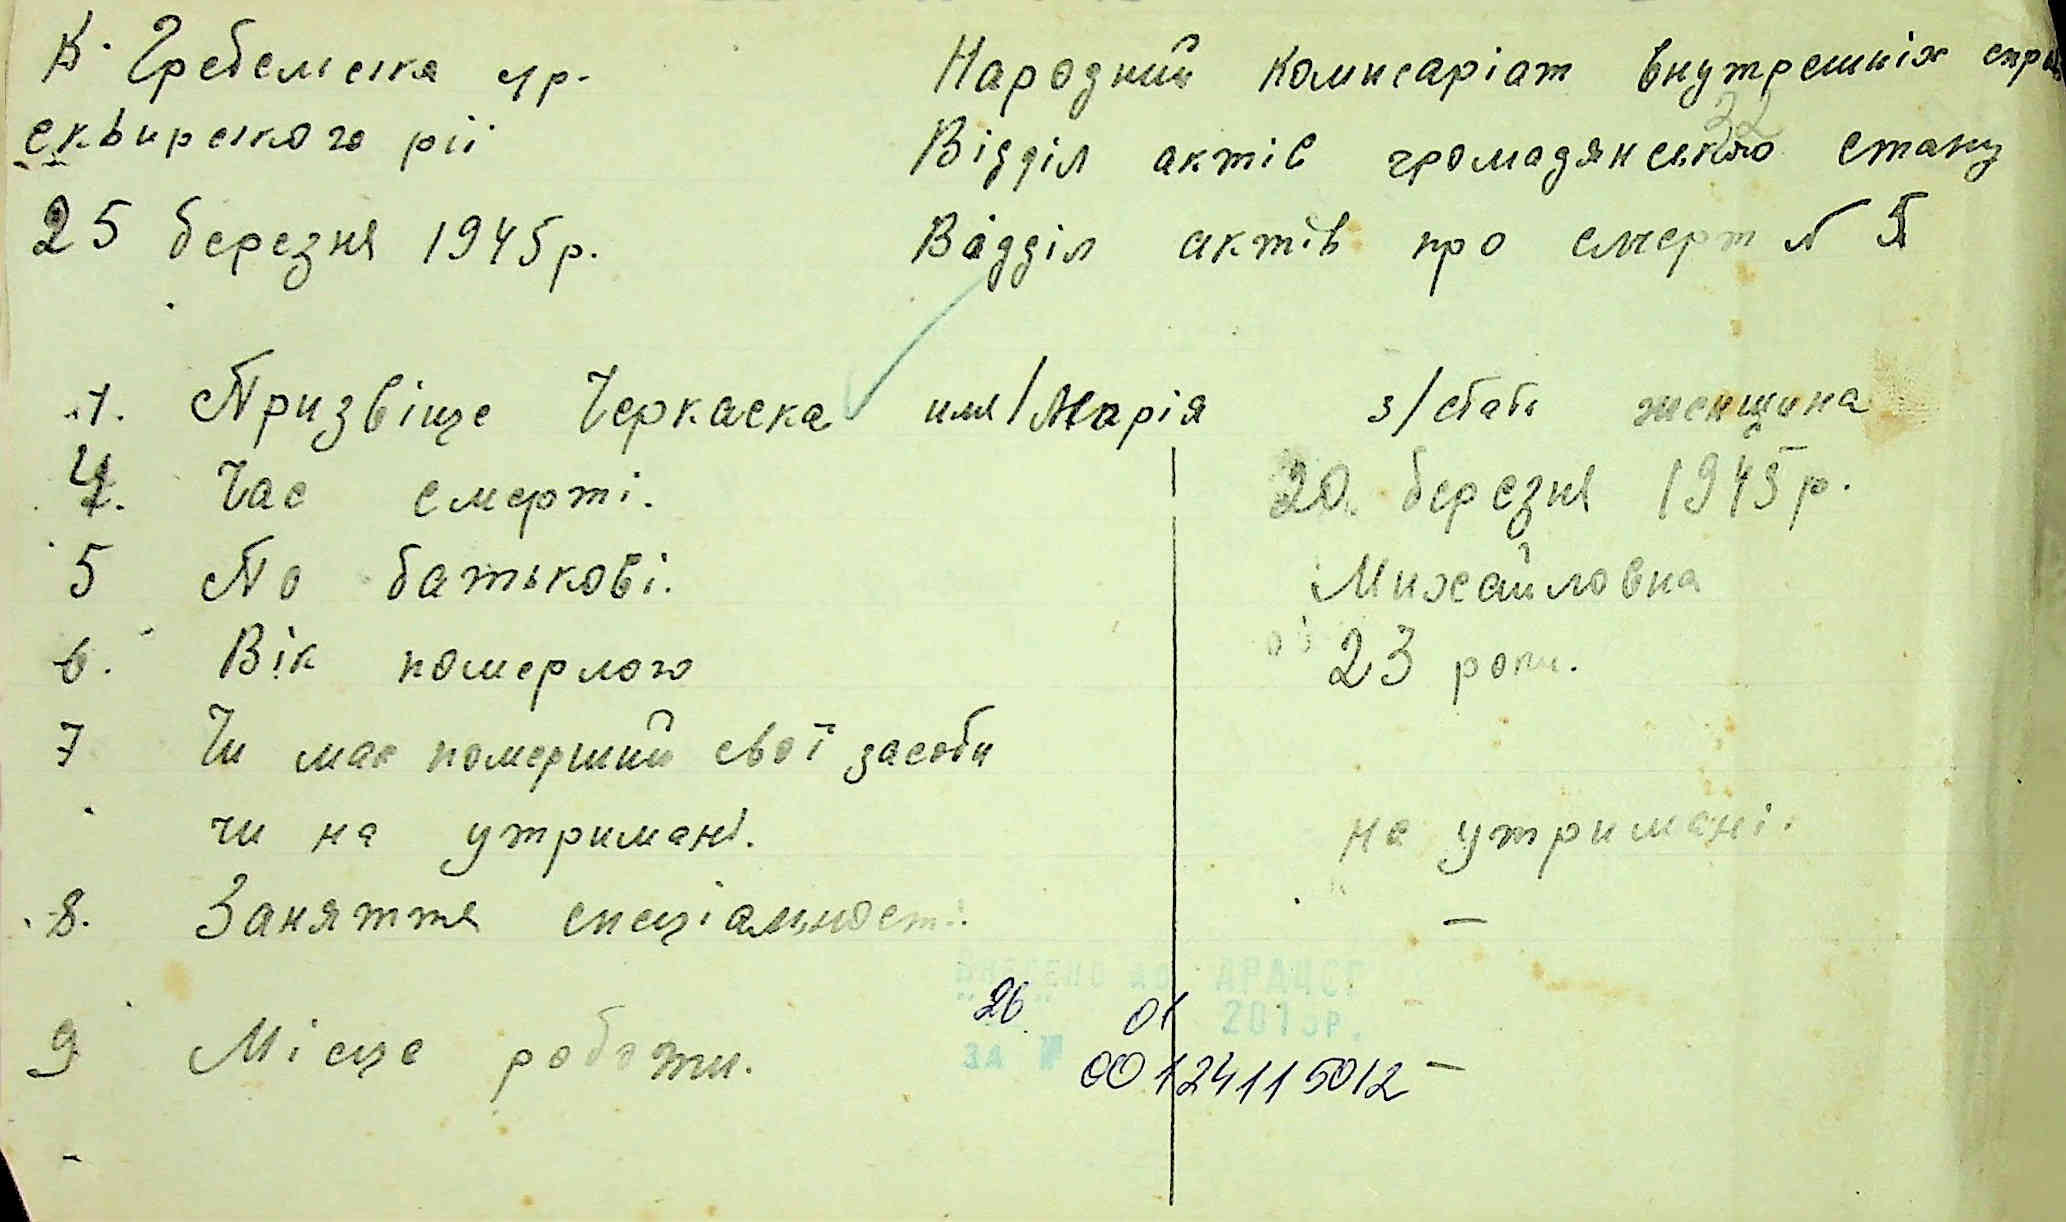 К. Гребельська с/р.
сквирського рії
25 березня 1945 р.
Народний Комисаріат внутрешніх спра
32
Відділ актів громадянського стану
Відділ актів про смерт № 5
1. Призвіще Черкаска имя/Марія з/стать женщина
4. Час смерті. 20. березня 1945 р.
5 По батькові. Михайловна
6. Вік померлого 23 роки.
7 Чи має померший свої засоби
чи на утримані. на утримані.
8. Заняття спеціальності. –
ВНЕСЕНО ДО ДРАЦСГ
"26" 01 2015р.
9 Місце роботи. –
ЗА № 00124115012